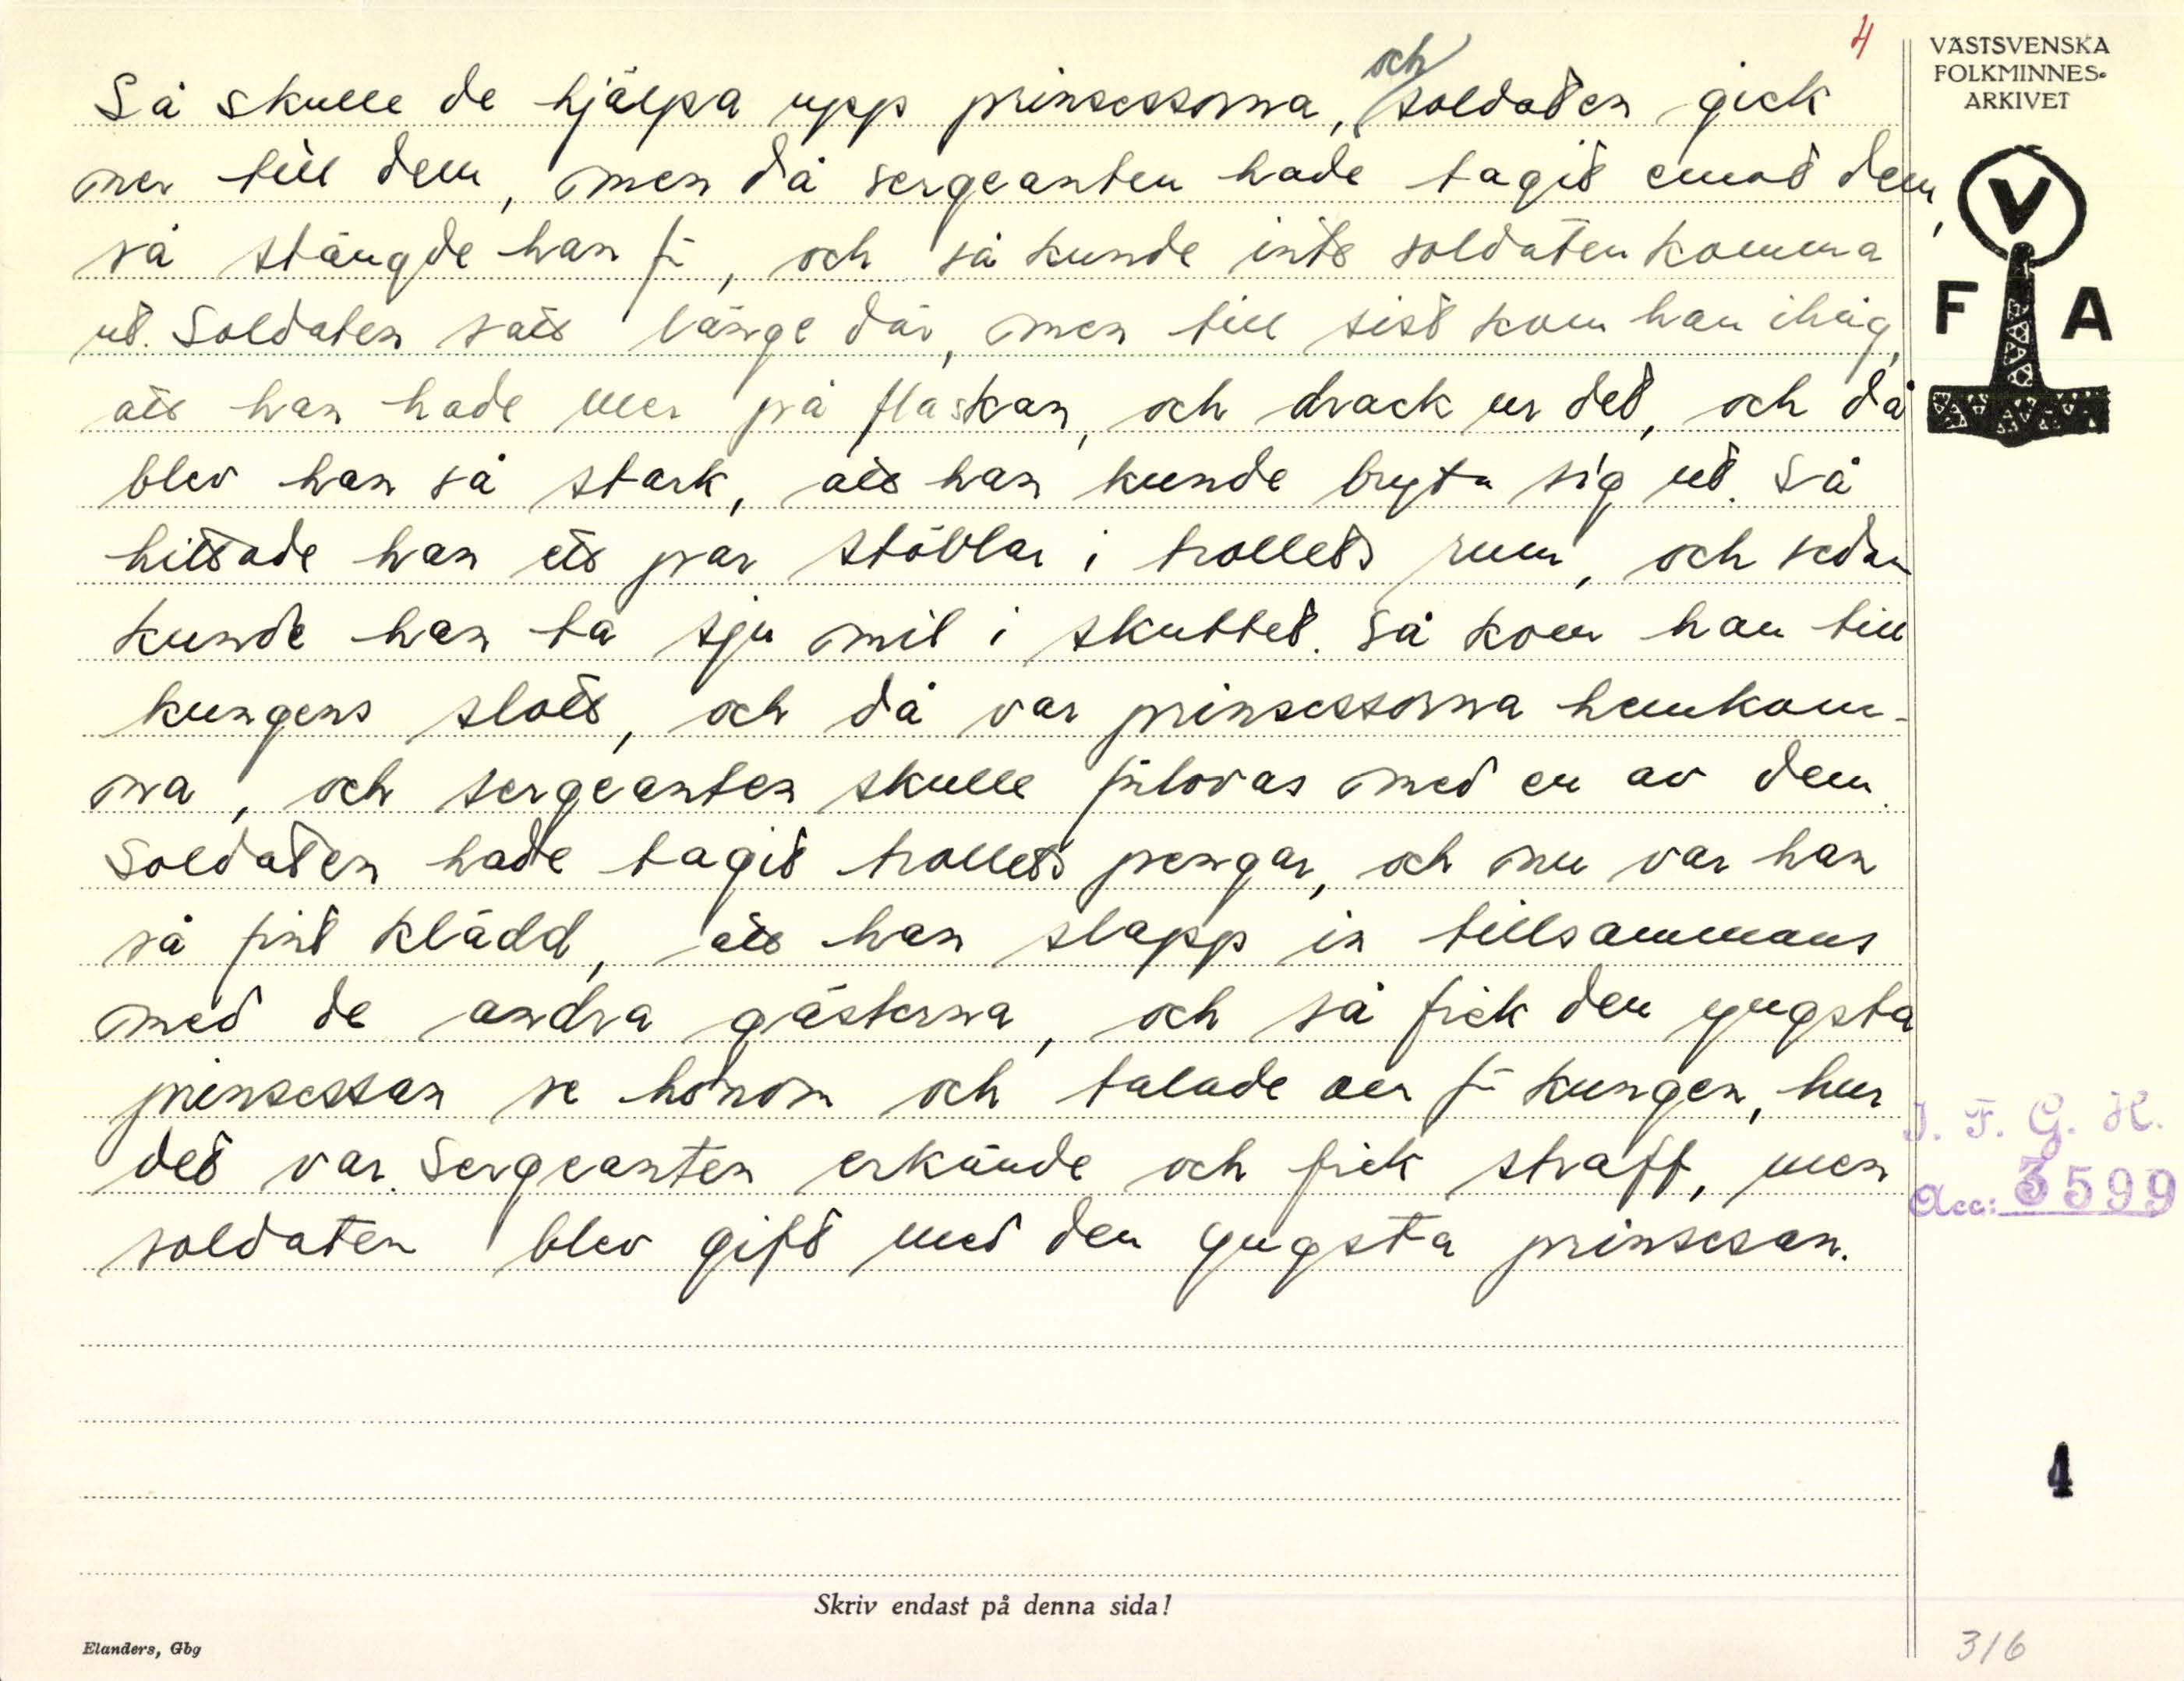 4
VÄSTSVENSKA
FOLKMINNES-
ARKIVET
V
F A
Så skulle de hjälpa upp prinsessorna, och soldaten gick
ner till dem, men då sergeanten hade tagit emot dem,
så stängde han f-, och så kunde inte soldaten komma
ut. Soldaten satt länge där, men till sist kom han ihåg,
att han hade mer på flaskan, och drack ur det, och då
blev han så stark, att han kunde bryta sig ut. Så
hittade han ett par stövlar i trollets rum, och sedan
kunde han ta sju mil i skuttet. Så kom han till
kungens slott, och då var prinsessorna hemkom-
na, och sergeanten skulle förlovas med en av dem.
Soldaten hade tagit trollets pengar, och nu var han
så fint klädd, att han slapp in tillsammans
med de andra gästerna, och så fick den yngsta
prinsessan se honom och talade om f- kungen, hur
det var. Sergeanten erkände och fick straff, men
soldaten blev gift med den yngsta prinsesan.
I. F. G. H.
Acc: 3599
4
Skriv endast på denna sida!
Elanders, Gbg
316